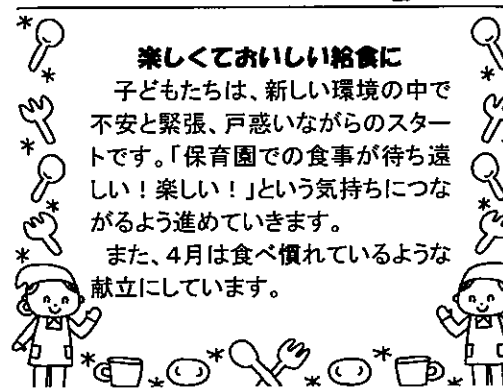 楽しくておいしい給食に
　子どもたちは、新しい環境の中で
不安と緊張、戸惑いながらのスター
トです。「保育園での食事が待ち遠
しい！楽しい！」という気持ちにつな
がるよう進めていきます。
　また、4月は食べ慣れているような
献立にしています。